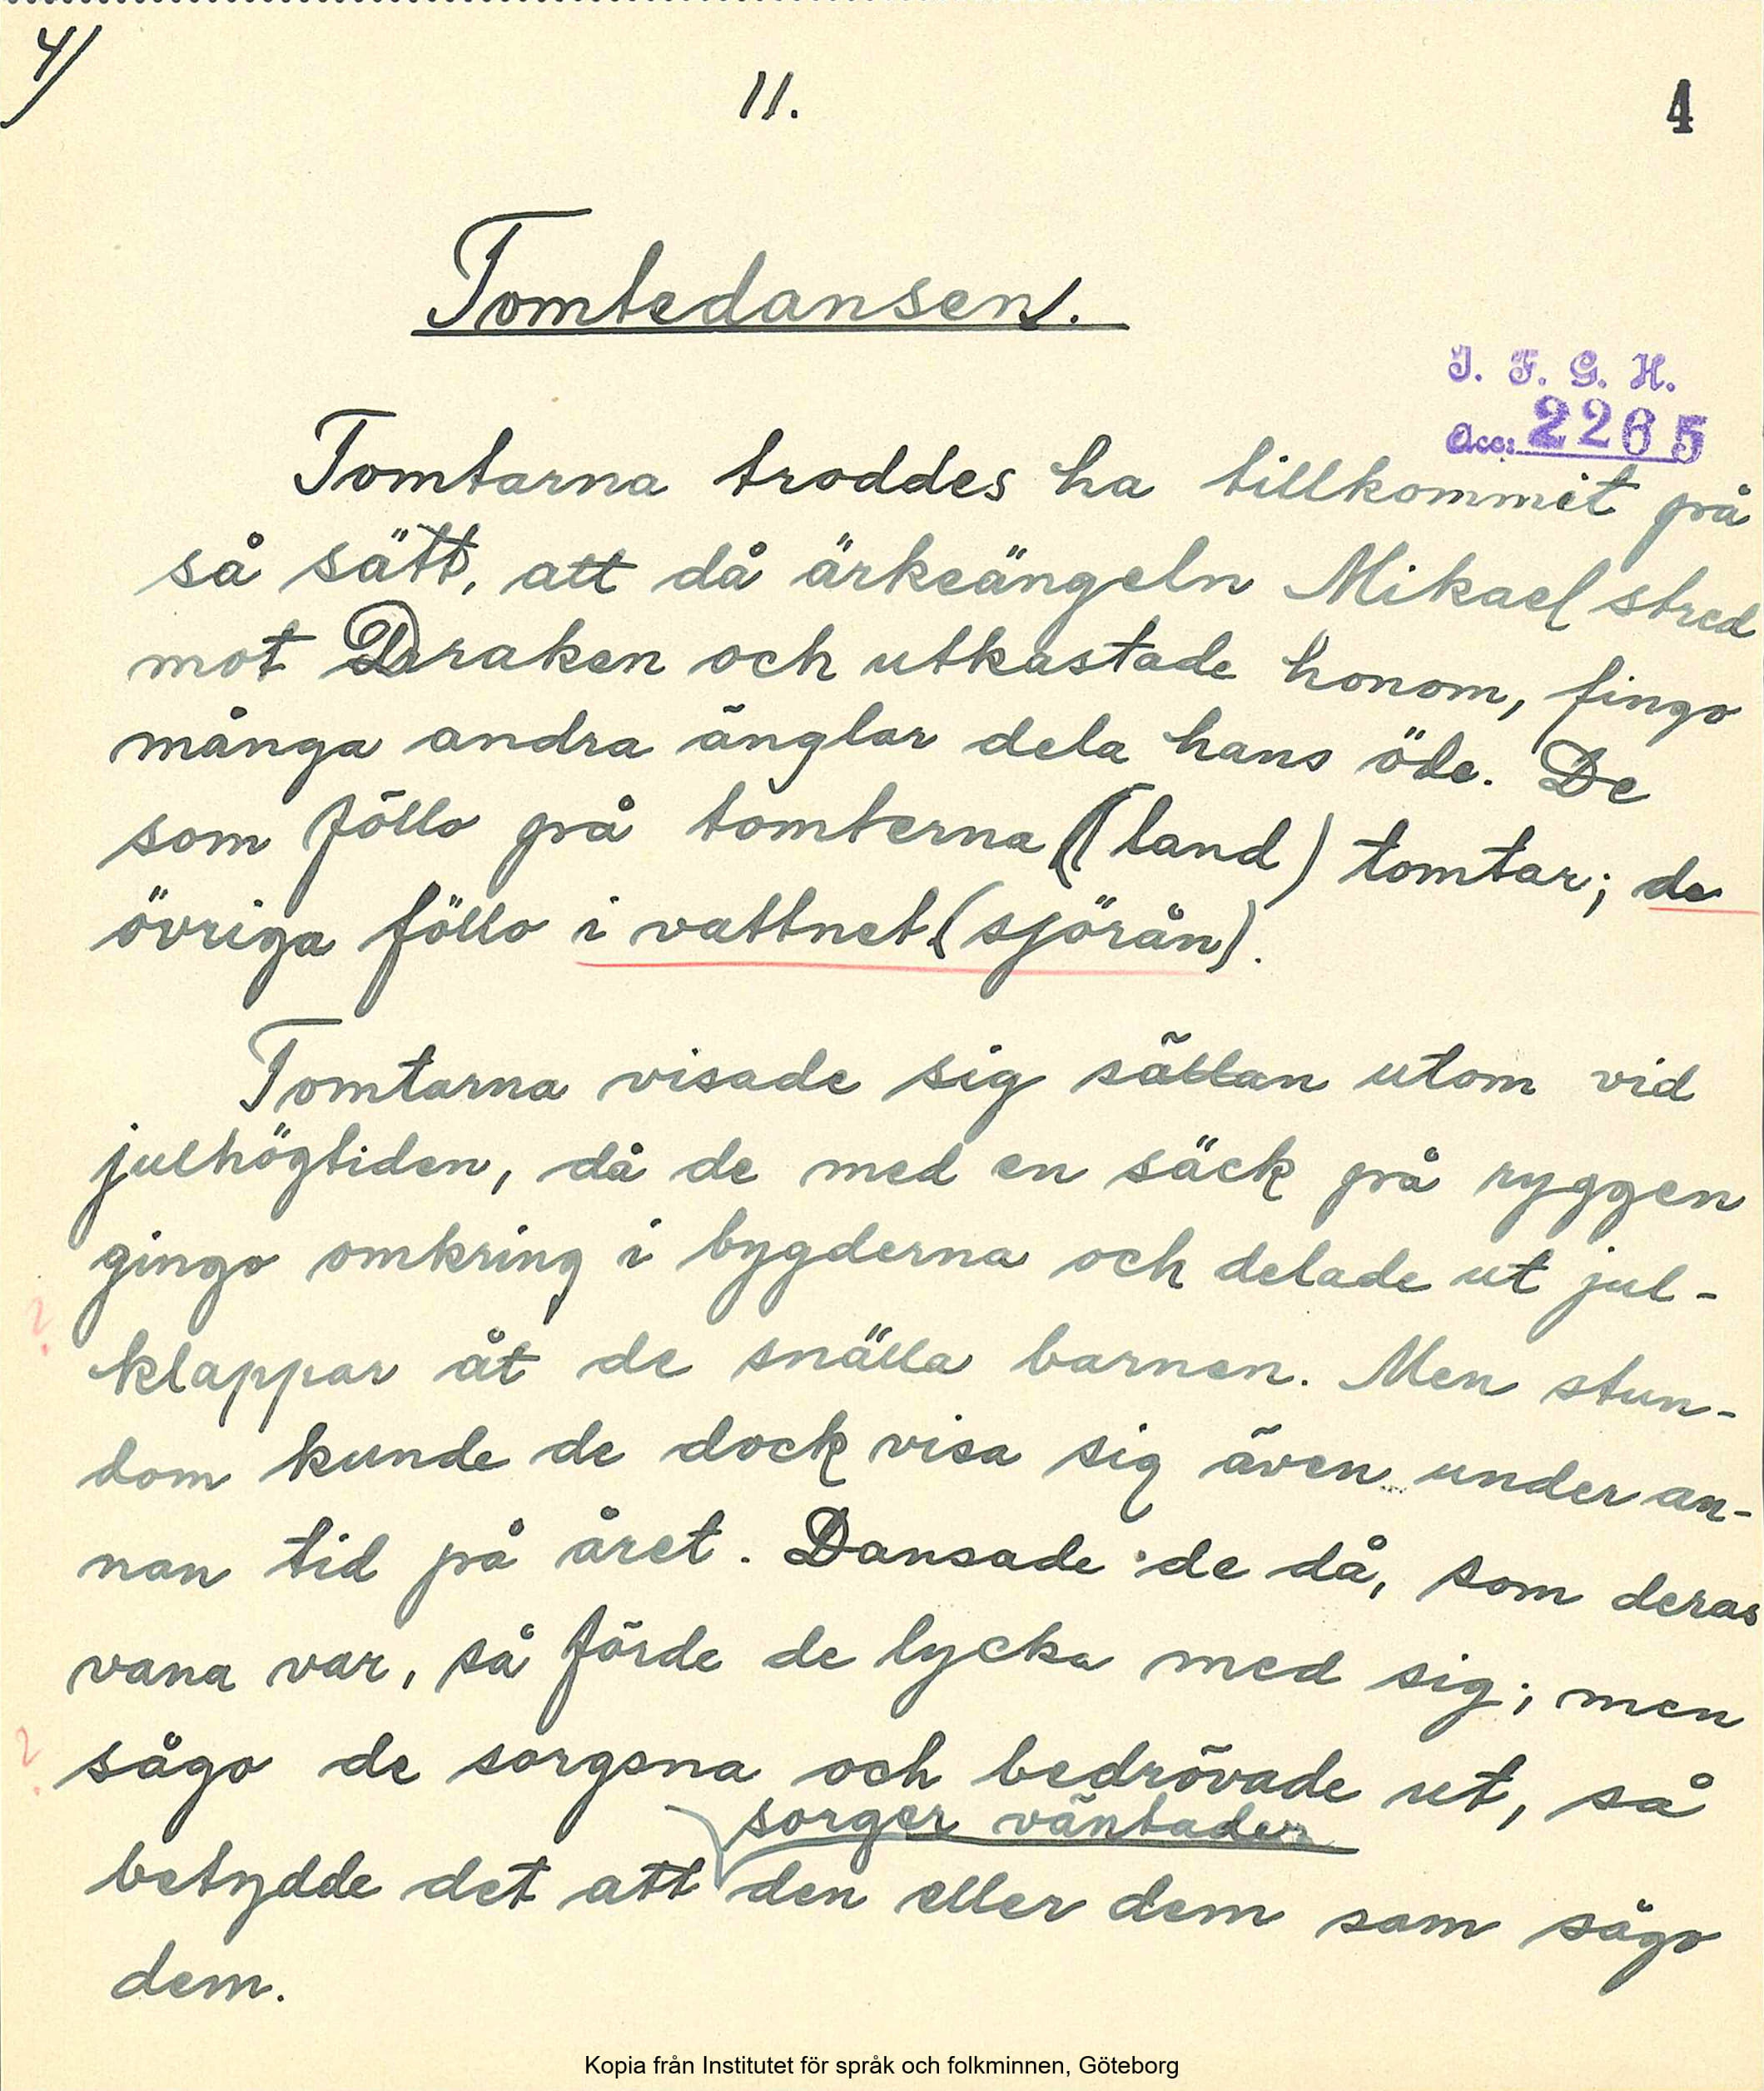 4/
11.
4
Tomtedansen.
I. F. G. H.
Acc: 2265
Tomtarna troddes ha tillkommit på
så sätt, att då ärkeängeln Mikael stred
mot Draken och utkastade honom, fingo
många andra änglar dela hans öde. De
som föllo på tomterna (land) tomtar; de
övriga föllo i vattnet (sjörån).
Tomtarna visade sig sällan utom vid
julhögtiden, då de med en säck på ryggen
gingo omkring i bygderna och delade ut jul-
?
klappar åt de snälla barnen. Men stun-
dom kunde de dock visa sig även under an-
nan tid på året. Dansade de då, som deras
vana var, så förde de lycka med sig; men
?
sågo de sorgsna och bedrövade ut, så
sorger väntader
betydde det att den eller dem som sågo
dem.
Kopia från Institutet för språk och folkminnen, Göteborg